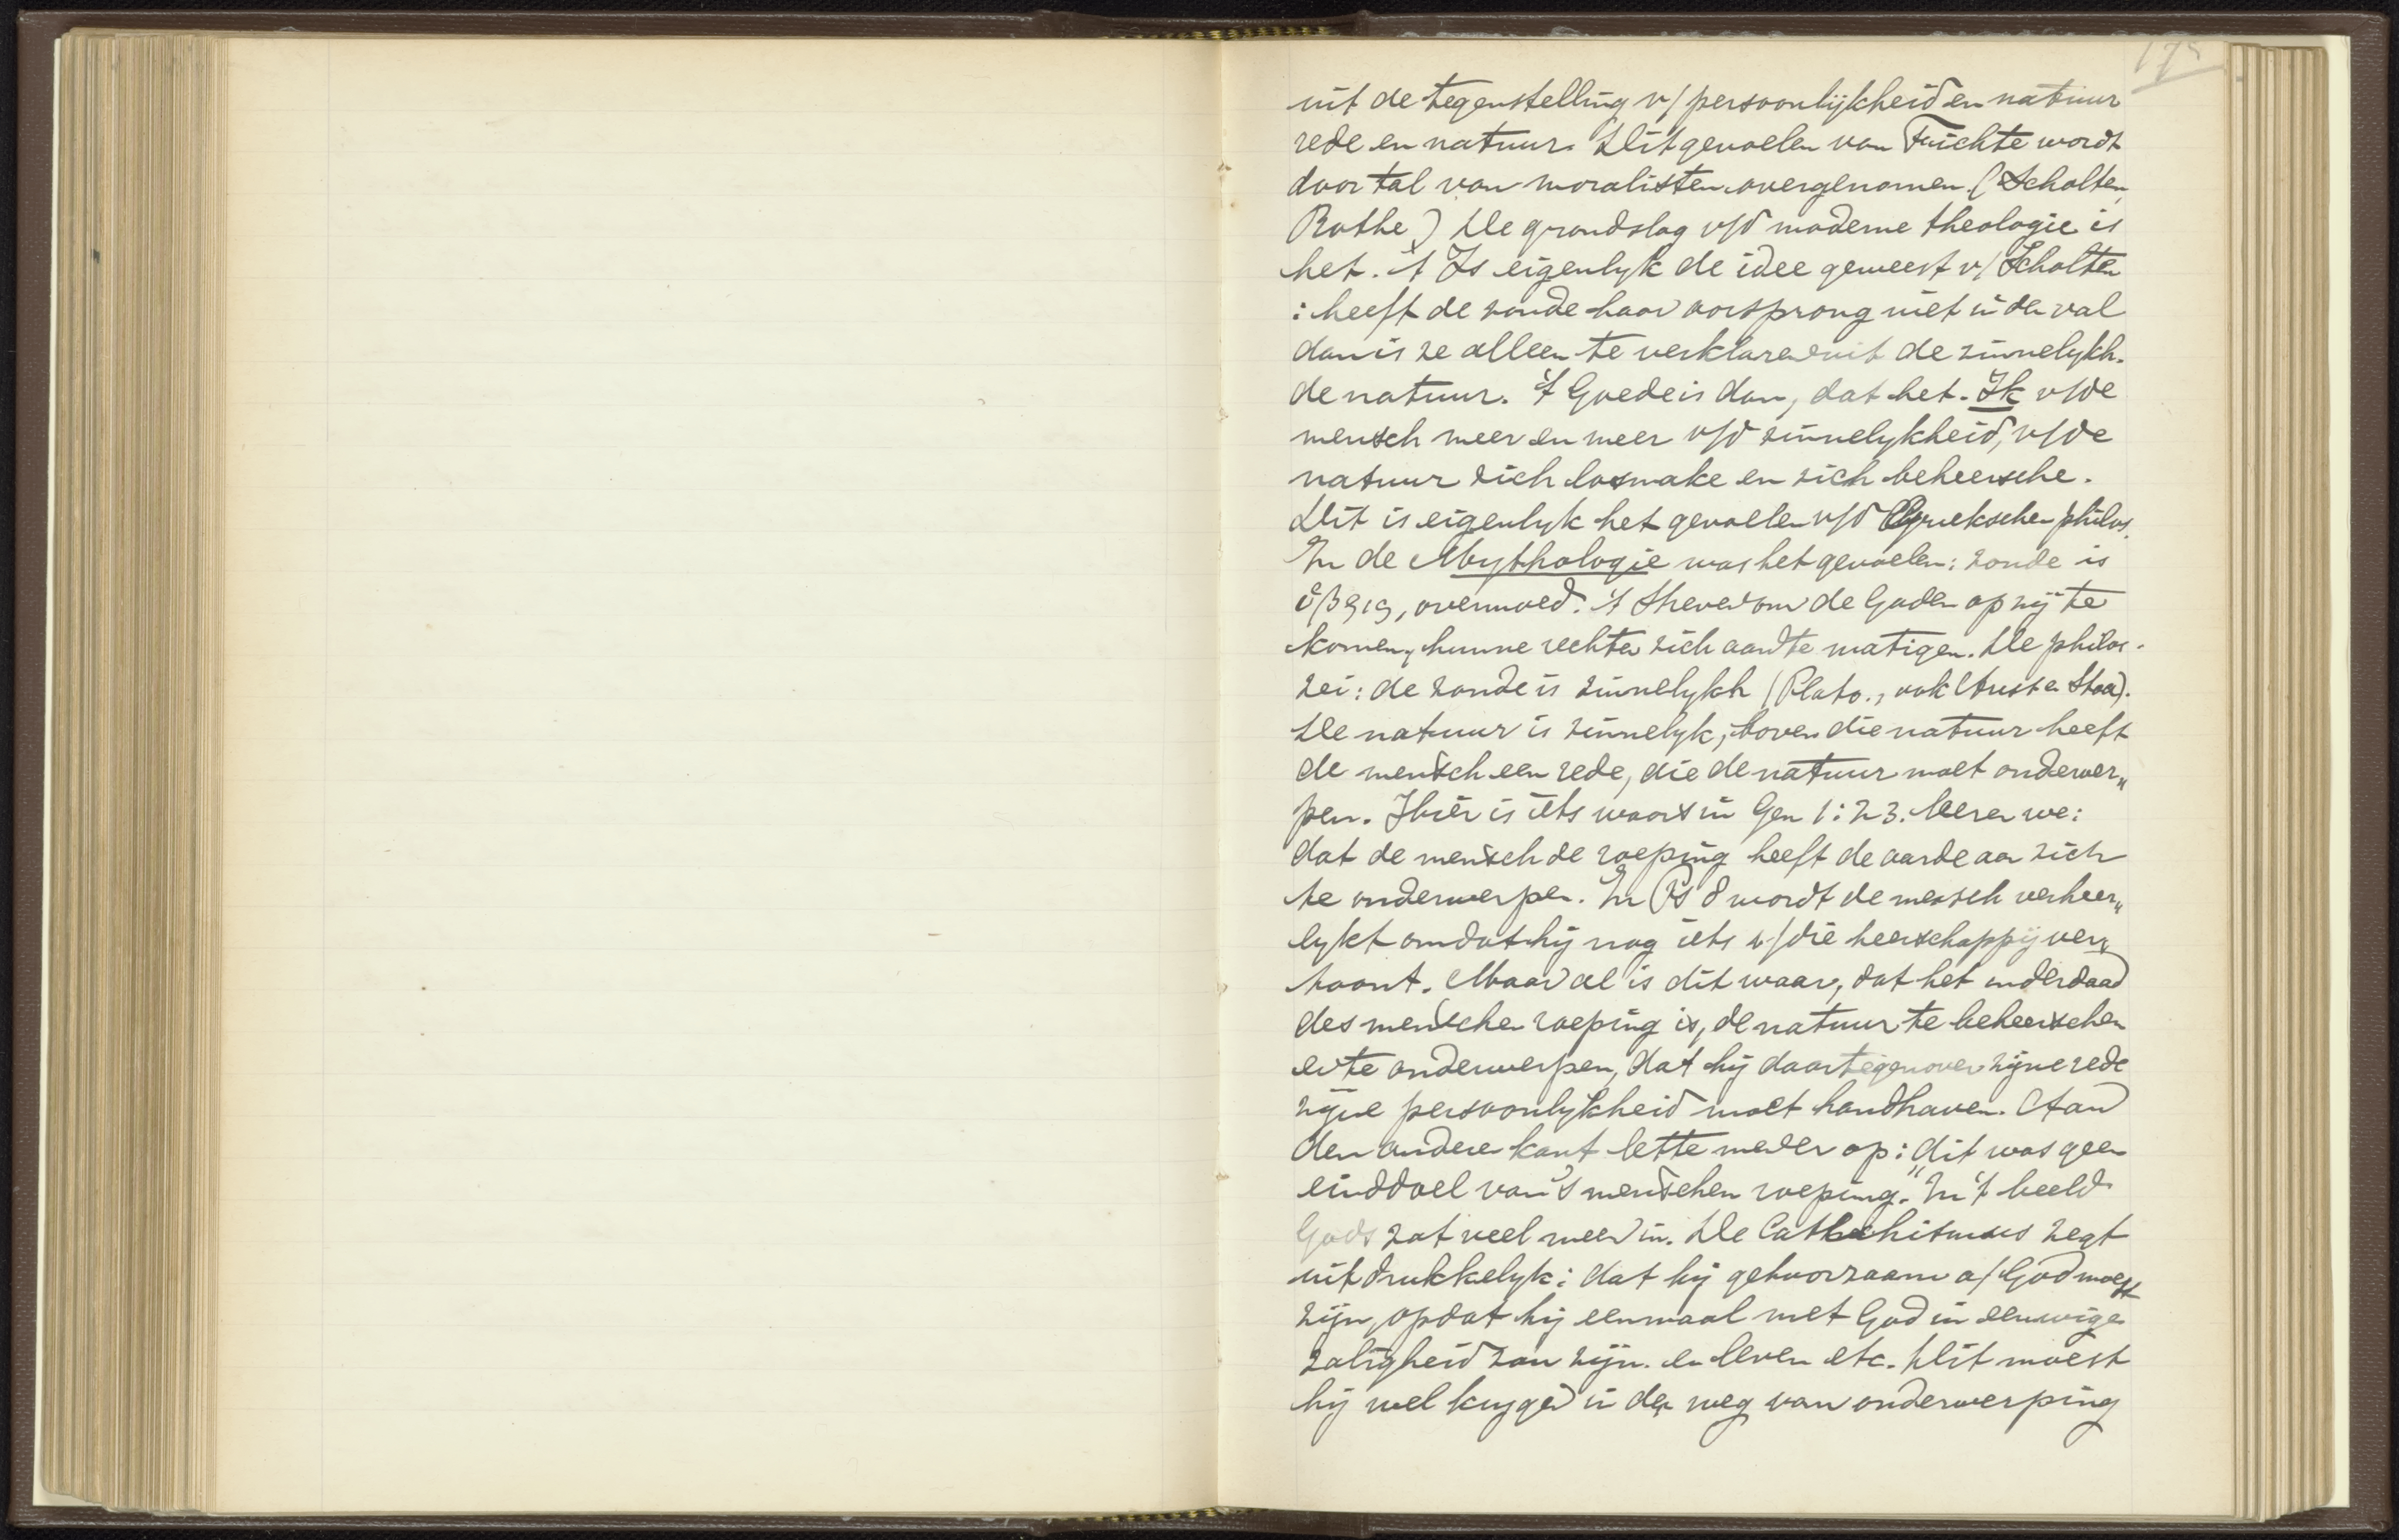 175
uit de tegenstelling v/ persoonlijkheid en natuur
rede en natuur. Dit gevoelen van Fichte wordt
door tal van moralisten overgenomen. (Scholten,
Rothe) De grondslag v/d moderne theologie is
het. 't Is eigenlyk de idee geweest v/ Scholten
: heeft de zonde haar oorsprong niet in den val
dan is ze alleen te verklaren uit de zinnelykh.
de natuur. 't Goede is dan, dat het Ik v/de
mensch meer en meer v/d zinnelykheid, v/de
natuur zich losmake en zich beheersche.
Dit is eigenlyk het gevoelen v/d Grieksche philos.
In de Mythologie was het gevoelen: zonde is
ὕβρις, overmoed. 't Streven om de Goden op zij te
komen, hunne rechten zich aan te matigen. De philos.
zei: de zonde is zinnelykh (Plato., ook Arist en Stoa).
De natuur is zinnelyk, boven die natuur heeft
de mensch een rede, die de natuur moet onderwer„
pen. Hier is iets waars in Gen 1: 23. leeren we:
dat de mensch de roeping heeft de aarde aan zich
te onderwerpen. In Ps 8 wordt de mensch verheer„
lykt omdat hij nog iets v/die heerschappij ver„
toont. Maar al is dit waar, dat het inderdaad
des menschen roeping is, de natuur te beheerschen
en te onderwerpen, dat hij daartegenover zijne rede
zijne persoonlykheid moet handhaven. Aan
den anderen kant lette men er op: "dit was geen
einddoel van 's menschen roeping." In 't beeld
Gods zat veel meer in. De Catechismus zegt
uitdrukkelyk: dat hij gehoorzaam a/ God moest
zijn, opdat hij eenmaal met God in eeuwige
zaligheid zou zijn. en leven etc. Dit moest
hij wel krygen in den weg van onderwerping